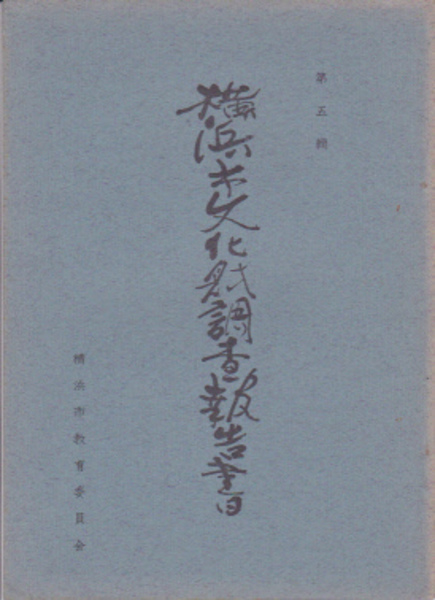 第五輯
横浜市文化財調査報告書
横浜市教育委員会